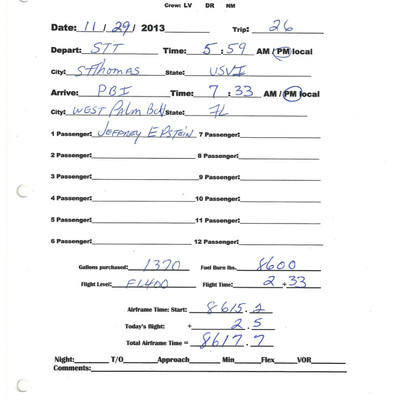 Crew: LV DR NM
Date: 11 / 29 / 2013 Trip: 26
Depart: STT Time: 5 : 59 AM / PM local
City: St Thomas State: USVI
Arrive: PBI Time: 7 : 33 AM / PM local
City: WEST Palm Bch State: FL
1 Passenger: JEFFREY EPSTEIN 7 Passenger:
2 Passenger: 8 Passenger:
3 Passenger: 9 Passenger:
4 Passenger: 10 Passenger:
5 Passenger: 11 Passenger:
6 Passenger: 12 Passenger:
Gallons purchased: 1370 Fuel Burn lbs. 8600
Flight Level: FL400 Flight Time: 2 + 33
Airframe Time: Start: 8615.2
Today's flight: + 2.5
Total Airframe Time = 8617.7
Night: T/O Approach Min Flex VOR
Comments: